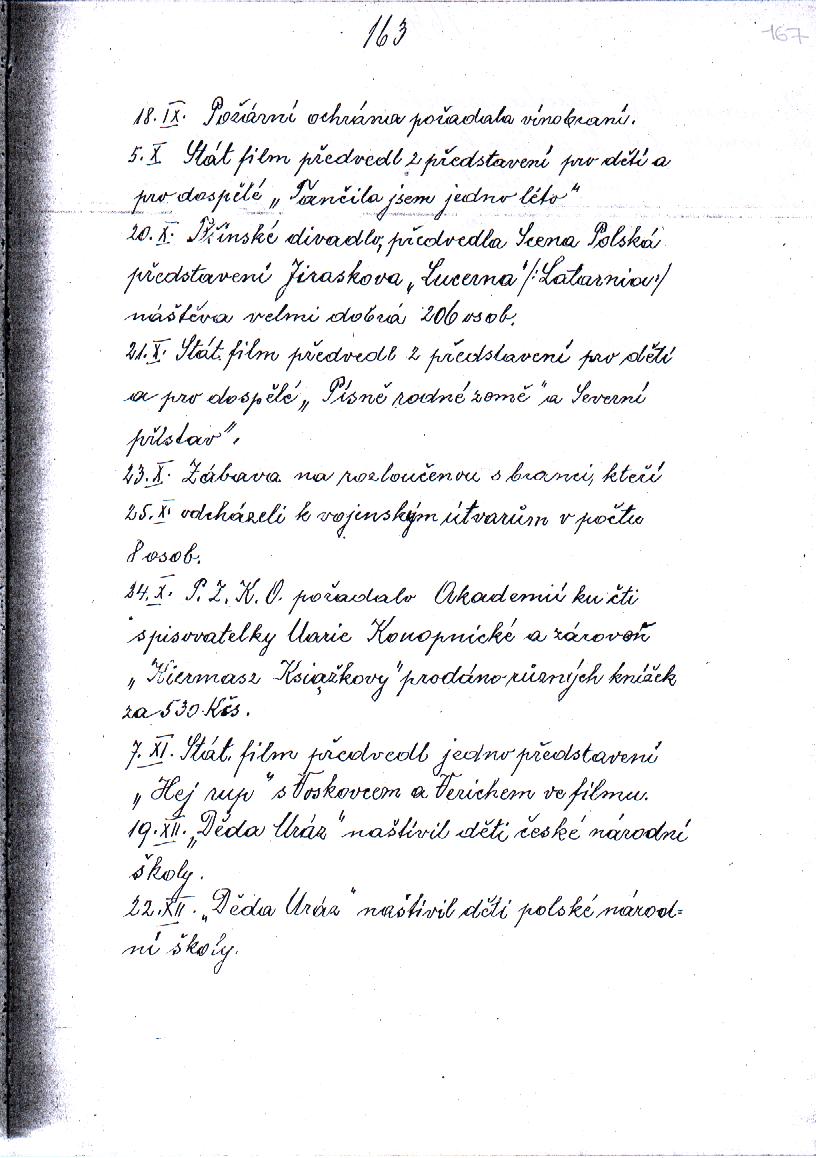 163
167
18.IX. Požární ochrána pořádala vinobraní.
5.X Stát film předvedl 2 představení pro děti a
pro dospělé „Tančila jsem jedno léto"
20.X. Třinské divadlo, předvedla Scena Polská
představení Jiraskova „Lucerna" /:Latarnia:/
náštěva velmi dobrá 206 osob.
21.X. Stát. film předvedl 2 představení pro děti
a pro dospělé „Písně rodné země" a Severní
přístav".
23.X. Zábava na rozloučenou s branci, kteří
25.XI odcházeli k vojenským útvarům v počtu
8 osob.
24.X. P.Z.K.O. pořádalo Akademii ku čti
spisovatelky Marie Konopnické a zároveň
„Kiermasz Książkowy" prodáno různých knížek
za 530 Kčs.
7.XI. Stát. film předvedl jedno představení
„Hej rup" s Voskovcem a Verichem ve filmu.
19.XII. „Děda Mráz" naštívil děti české národní
školy.
22.XII. „Děda Mráz" naštívil děti polské národ=
ní školy.